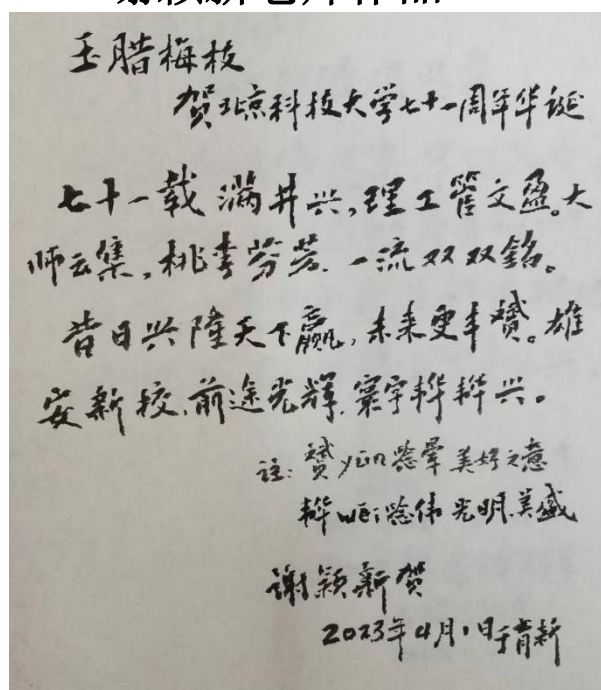 玉腊梅枝
贺北京科技大学七十一周年华诞
七十一载满井兴，理工管文盈。大
师云集，桃李芬芳，一流双双铭。
昔日兴隆天下赢，未来更丰赟。雄
安新校，前途光辉，寰宇韡韡兴。
注：赟yūn念晕 美好之意
韡wěi念伟 光明美盛
谢颖新贺
2023年4月1日于育新